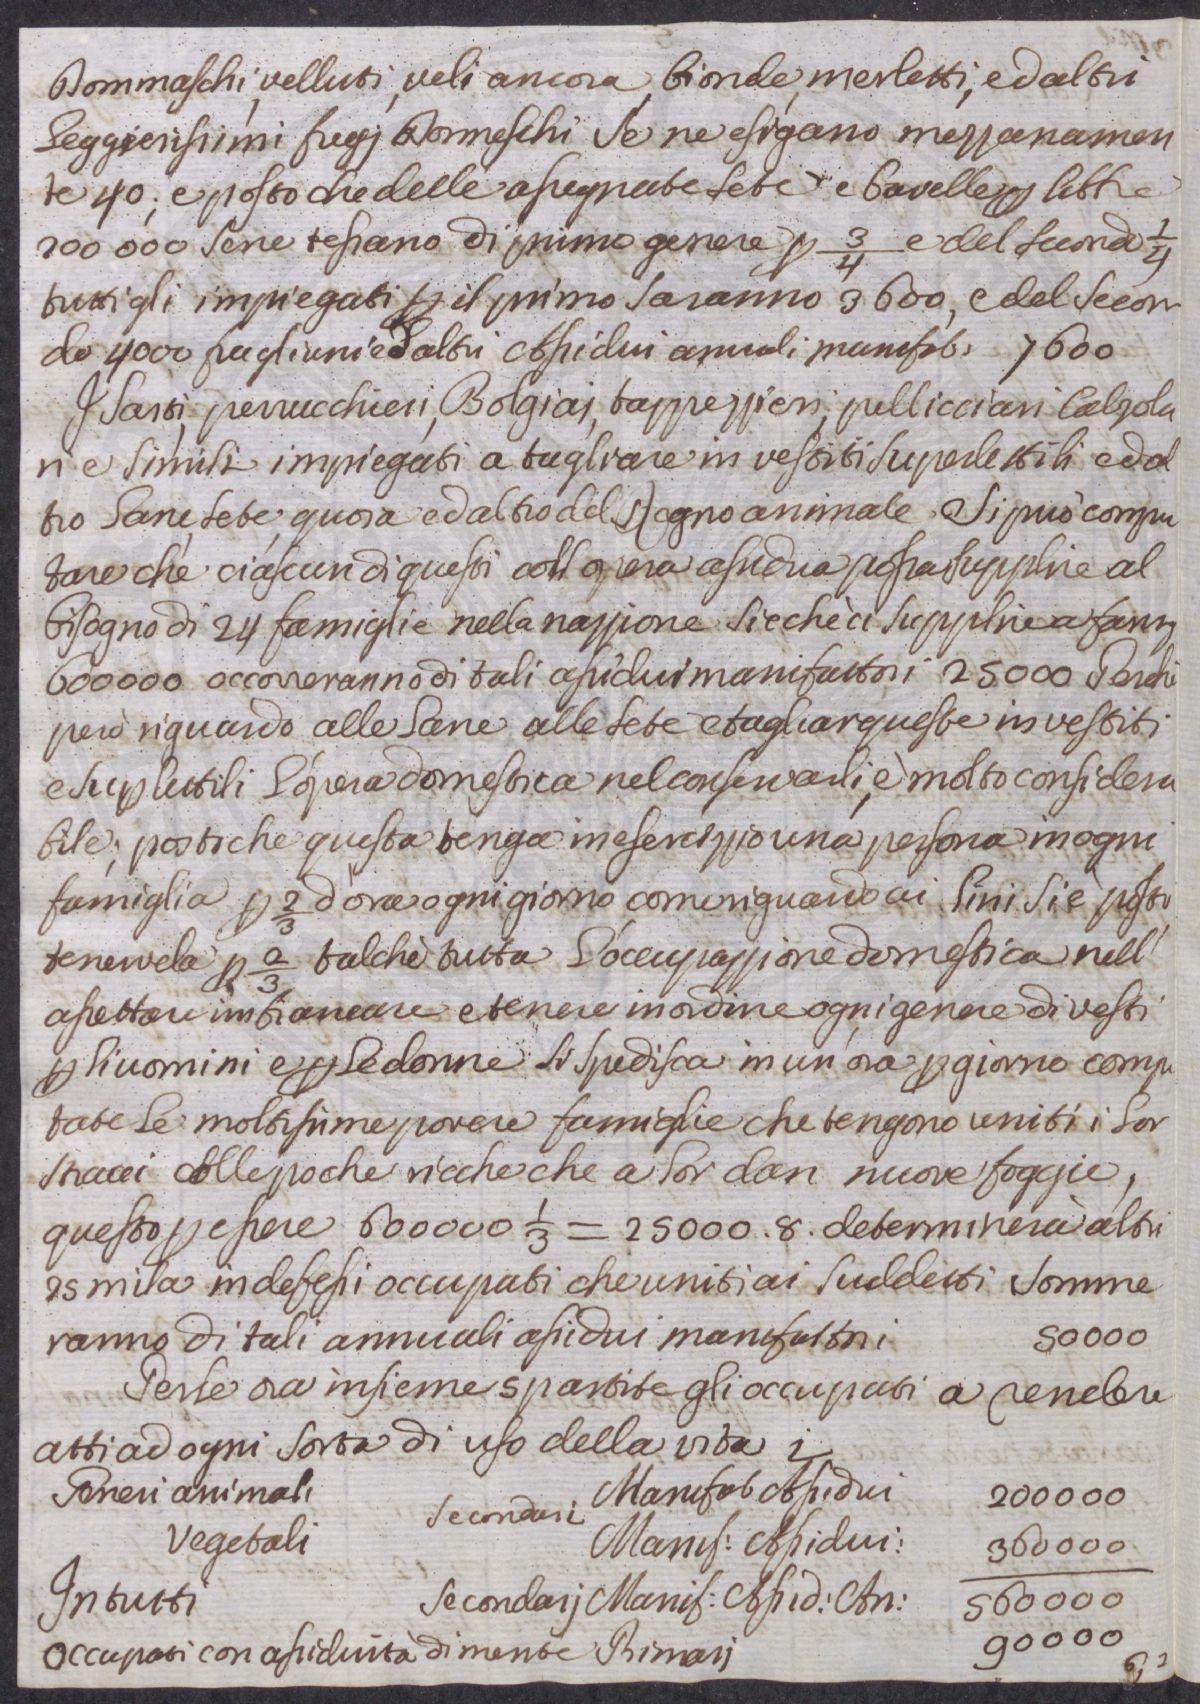 Dommaschi, velluti, veli ancora, bionde, merletti, ed altri
Leggierissimi fregj Donneschi Se ne esigano mezzanamen
te 40; e posto che delle assegnate sete e bavelle p libbre
200 000 Sene tessano di primo genere p 3/4 e del secondo 1/4
tutti gli impiegati p il primo Saranno 3600, e del Secon
do 4000 fra gli uni ed altri Assidui annuali manifat: 7600
I Sarti, perrucchieri, Bolgiaj, tappezzieri, pellicciari Calzola
ri e Simili impiegati a tagliare in vestiti Superlettili ed al
tro Lane, Sete, quora ed altro del Regno animale Si può compu
tare che ciascun di questi coll opera assidua possa Supplire al
bisogno di 24 famiglie nella nazzione Siechè a Supplire a fam
600000 occorreranno di tali assidui manifattori 25000 Perche
però riguardo alle Lane alle Sete e tagliar queste in vestiti
e Suplettili L'opera domestica nel conservarli, è molto considera
bile; postiche questa tenga in esercizzio una persona in ogni
famiglia p 2/3 d'ora ogni giorno come riguardo ai Lini si è posto
tenervela p 2/3 talchè tutta L'occupazzione domestica nell'
assettare imbiancare e tenere in ordine ogni genere di vesti
p li uomini e p Le donne si spedisca in un'ora p giorno compu
tate Le moltissime povere famiglie che tengono uniti i Lor
stracci colle poche ricche che a Lor dan nuove foggie,
questo p essere 600000 1/3 = 25000.8. determinerà altri
25 mila indefessi occupati che uniti ai Suddetti Somme
ranno di tali annuali assidui manifattori 50000
Perle ora insieme spartite gli occupati a rendere
atti ad ogni Sorta di uso della vita i
Generi animali Secondarj Manifat Assidui 200000
Vegetali Manif: Assidui: 360000
In tutti Secondarj Manif: Assid: An: 560000
Occupati con assiduità di mente Primarj 90000